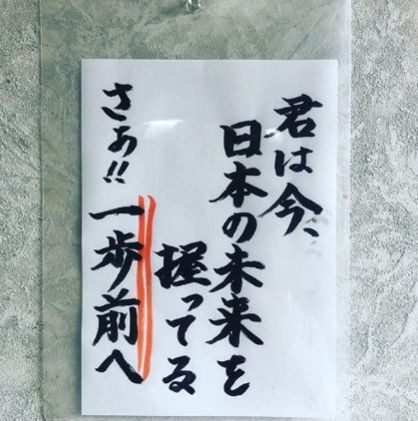 君は今、
日本の未来を
握ってる
さぁ!!一歩前へ